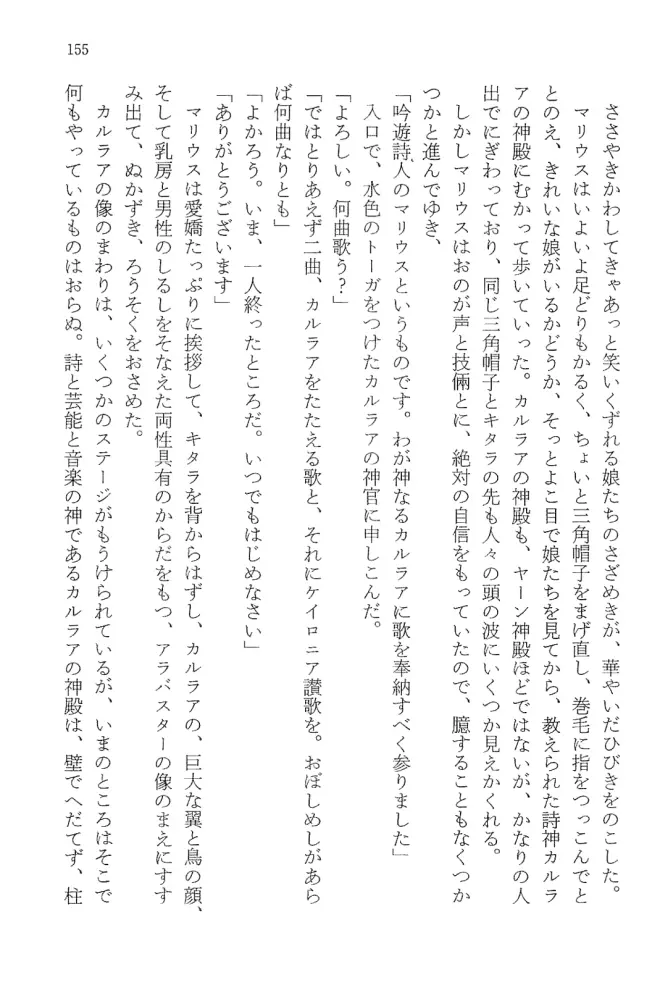 155
ささやきかわしてきゃあっと笑いくずれる娘たちのさざめきが、華やいだひびきをのこした。
マリウスはいよいよ足どりもかるく、ちょいと三角帽子をまげ直し、巻毛に指をつっこんでと
とのえ、きれいな娘がいるかどうか、そっとよこ目で娘たちを見てから、教えられた詩神カルラ
アの神殿にむかって歩いていった。カルラアの神殿も、ヤーン神殿ほどではないが、かなりの人
出でにぎわっており、同じ三角帽子とキタラの先も人々の頭の波にいくつか見えかくれる。
しかしマリウスはおのが声と技倆とに、絶対の自信をもっていたので、臆することもなくつか
つかと進んでゆき、
「吟遊詩人のマリウスというものです。わが神なるカルラアに歌を奉納すべく参りました」
入口で、水色のトーガをつけたカルラアの神官に申しこんだ。
「よろしい。何曲歌う？」
「ではとりあえず二曲、カルラアをたたえる歌と、それにケイロニア讃歌を。おぼしめしがあら
ば何曲なりとも」
「よかろう。いま、一人終ったところだ。いつでもはじめなさい」
「ありがとうございます」
マリウスは愛嬌たっぷりに挨拶して、キタラを背からはずし、カルラアの、巨大な翼と鳥の顔、
そして乳房と男性のしるしをそなえた両性具有のからだをもつ、アラバスターの像のまえにすす
み出て、ぬかずき、ろうそくをおさめた。
カルラアの像のまわりは、いくつかのステージがもうけられているが、いまのところはそこで
何もやっているものはおらぬ。詩と芸能と音楽の神であるカルラアの神殿は、壁でへだてず、柱